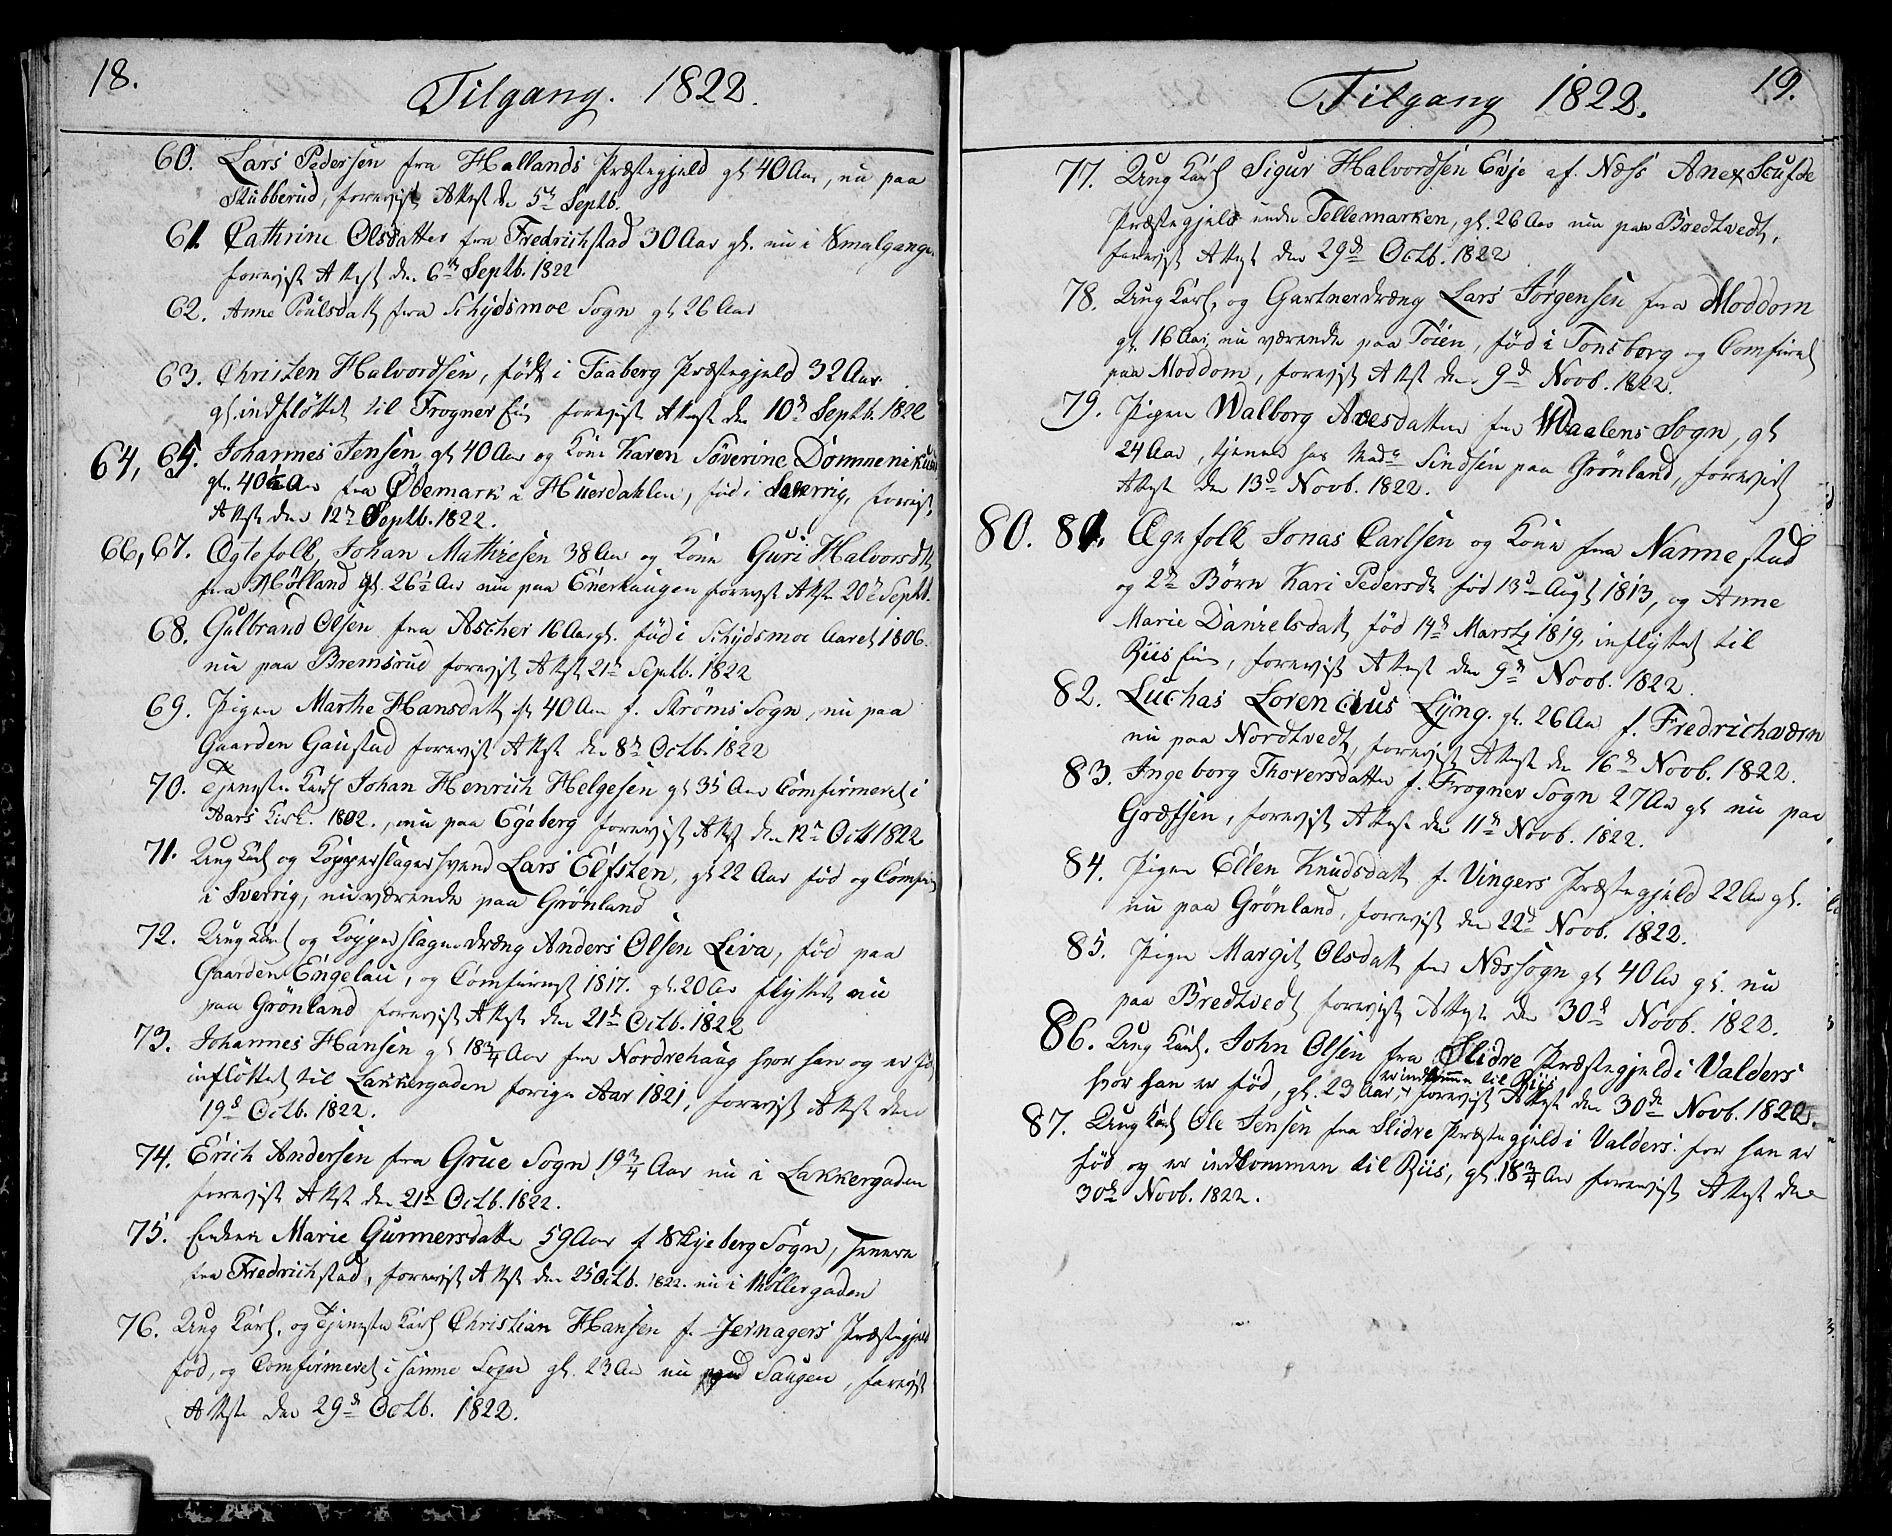 18.
Tilgang. 1822.
60. Lars Pedersen fra Hallands Præstegjeld gl 40 Aar, nu paa
Stubberud, forevist Attest de 5te Septb.
61. Cathrine Olsdatter fra Fredrichstad 30 Aar gl. nu i Smalgangen
forevist Attest den 6te Septb. 1822
62. Anne Poulsdatt fra Schydsmoe Sogn gl 26 Aar
63. Christen Halvordsen, født i Faaberg Præstegjeld 32 Aar
gl. indfløttet til Frogner Eie forevist Attest den 10de Septb. 1822
64, 65. Johannes Jensen gl 40 Aar og Kone Karen Søverine
gl. 40½ Aar fra Ødemark i Huerdahlen, fød i Sverrig, forevist
Attest den 12te Septb. 1822.
66, 67. Ægtefolk, Johan Mathiesen 38 Aar og Kone Guri Halvorsdt
fra Høland gl. 26½ Aar nu paa Enerhaugen forevist Attest 20de Septb.
68. Gulbrand Olsen fra Ascher 16 Aar gl. fød i Schydsmoe Aaret 1806.
nu paa Bremsrud forevist Attest 21de Septb. 1822
69. Pigen Marthe Hansdatt gl 40 Aar f. Strøms Sogn, nu paa
Gaarden Gaustad forevist Attest de 8de Octb. 1822
70. Tjeneste Karl Johan Henrich Helgesen gl 35 Aar Comfirmeret i
Aars Kirk. 1802., nu paa Egeberg forevist Attest den 12te Octb 1822
71. Ung Karl og Kopperslager Svend Lars Elfsten, gl 22 Aar fød og Comfir
i Sverrig, nu værende paa Grönland
72. Ung Karl og Kopperslager dræng Anders Olsen Liva, fød paa
Gaarden Engelau, og Comfirmert 1817. gl. 20 Aar flyttet nu
paa Grönland forevist Attest den 21de Octb. 1822
73. Johannes Hansen gl 18¾ Aar fra Nordrehaug hvor han og er fød
infløttet til Lakkergaden forige Aar 1821, forevist Attest den
19d Octb. 1822.
74. Erich Andersen fra Grue Sogn 19¾ Aar nu i Lakkergaden
forevist Attest den 21de Octb. 1822.
75. Enken Marie Gunnersdatte 59 Aar f Skjeberg Sogn,
fra Fredrichstad, forevist Attest den 25 Octb. 1822. nu i Møllergaden
76. Ung Karl, og Tjeneste Karl Christian Hansen f. Jevnagers Præstegjeld
fød, og Comfirmeret i samme Sogn gl. 23 Aar nu paa Saugen, forevist
Attest den 29de Octb. 1822.
19.
Tilgang 1822.
77. Ung Karl Sigur Halvordsen Evje af. Næss Anex
Præstegjeld under Tellemarken, gl. 26 Aar nu paa Bredtvedt,
forevist Attest den 29de Octb. 1822
78. Ung Karl, og Gartnerdræng Lars Jörgensen fra Moddom
gl. 16 Aar, nu værende paa Töien, fød i Tonsborg og Comfirert
paa Moddom, forevist Attest den 9d Novb. 1822.
79. Pigen Walborg Aresdatter fra Waalens Sogn, gl
24 Aar, tjener hos Made Sindsen paa Grönland, forevist
Attest den 13d Novb. 1822.
80. 81. Ægtefolk Jonas Carlsen og Kone fra Nannestad
og 2de Børn Kari Pedersdt fød 13d Augt 1813, og Anne
Marie Danielsdatt fød 14de Marts 1819, inflyttet til
Riis Eie, forevist Attest den 9de Novb. 1822.
82. Luchas Lorencius Lyng. gl. 26 Aar f. Fredrichværn
nu paa Nordtvedt, forevist Attest den 16de Novb. 1822.
83. Ingeborg Thoversdatter f. Frogner Sogn 27 Aar gl nu paa
Græfsen, forevist Attest den 11de Novb. 1822.
84. Pigen Ellen Knudsdatt f. Vingers Præstegjeld 22 Aar gl.
nu paa Grønland, forevist den 22d Novb. 1822.
85. Pigen Margit Olsdatt fra Næssogn gl 40 Aar gl. nu
paa Bredtvedt forevist Attest den 30d Novb. 1822.
86. Ung Karl. John Olsen fra Slidre Præstegjeld i Valders
er indkommen til Riis
hvor han er fød, gl. 23 Aar, forevist Attest den 30de Novb. 1822.
87. Ung Karl Ole Jensen fra Slidre Præstegjeld i Valders. hor han er
fød og er indkommen til Riis, gl. 18¾ Aar forevist Attest den
30d Novb. 1822.